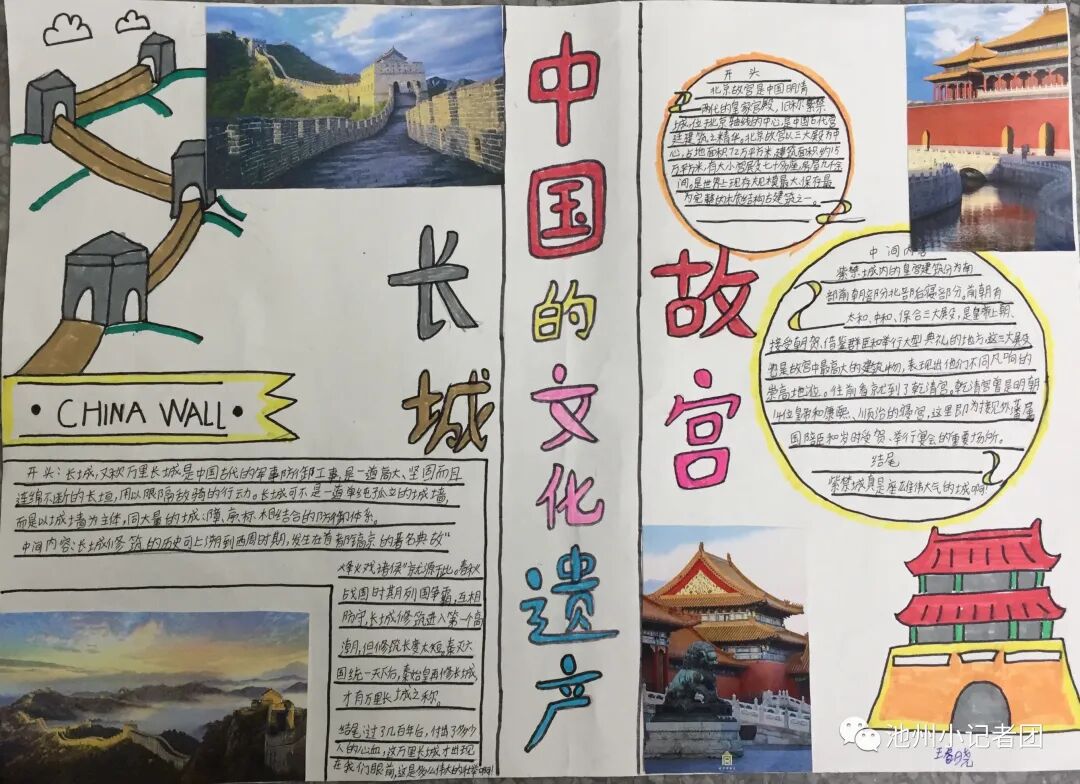 中国的文化遗产
长城
CHINA WALL
开头:长城,又称万里长城,是中国古代的军事防御工事,是一道高大、坚固而且
连绵不断的长垣,用以限隔敌骑的行动。长城可不是一道单纯孤立的城墙,
而是以城墙为主体,同大量的城、障、亭、标相结合的防御体系。
中间内容:长城修筑的历史可上溯到西周时期,发生在首都镐京的著名典故"
烽火戏诸侯"就源于此。春秋
战国时期列国争霸,互相
防守,长城修筑进入第一个高
潮,但修筑长度太短,秦灭六
国统一天下后,秦始皇再修长城,
才有万里长城之称。
结尾:过了几百年后,付出了多少
人的心血,这万里长城才出现
在我们眼前,这是多么伟大的壮举啊!
故宫
开头
北京故宫是中国明清
两代的皇家宫殿,旧称紫禁
城,位于北京轴线的中心,是中国古代宫
廷建筑之精华。北京故宫以三大殿为中
心,占地面积72万平方米,建筑面积约15
万平方米,有大小宫殿七十多座,房屋九千余
间。是世界上现存规模最大、保存最
为完整的木质结构古建筑之一。
中间内容
紫禁城内的皇宫建筑分为南
部前朝部分北部后寝部分。前朝有
太和、中和、保合三大殿,是皇帝上朝、
接受朝贺、借鉴群臣和举行大型典礼的地方,这三大殿
也是故宫中最高大的建筑物,表现出他们不同凡响的
崇高地位。往前看就到了乾清宫,乾清宫曾是明朝
14位皇帝和康熙、顺治的寝宫,这里即为接见外藩属
国陪臣和岁时受贺、举行宴会的重要场所。
结尾
紫禁城真是座雄伟大气的城啊!
池州小记者团